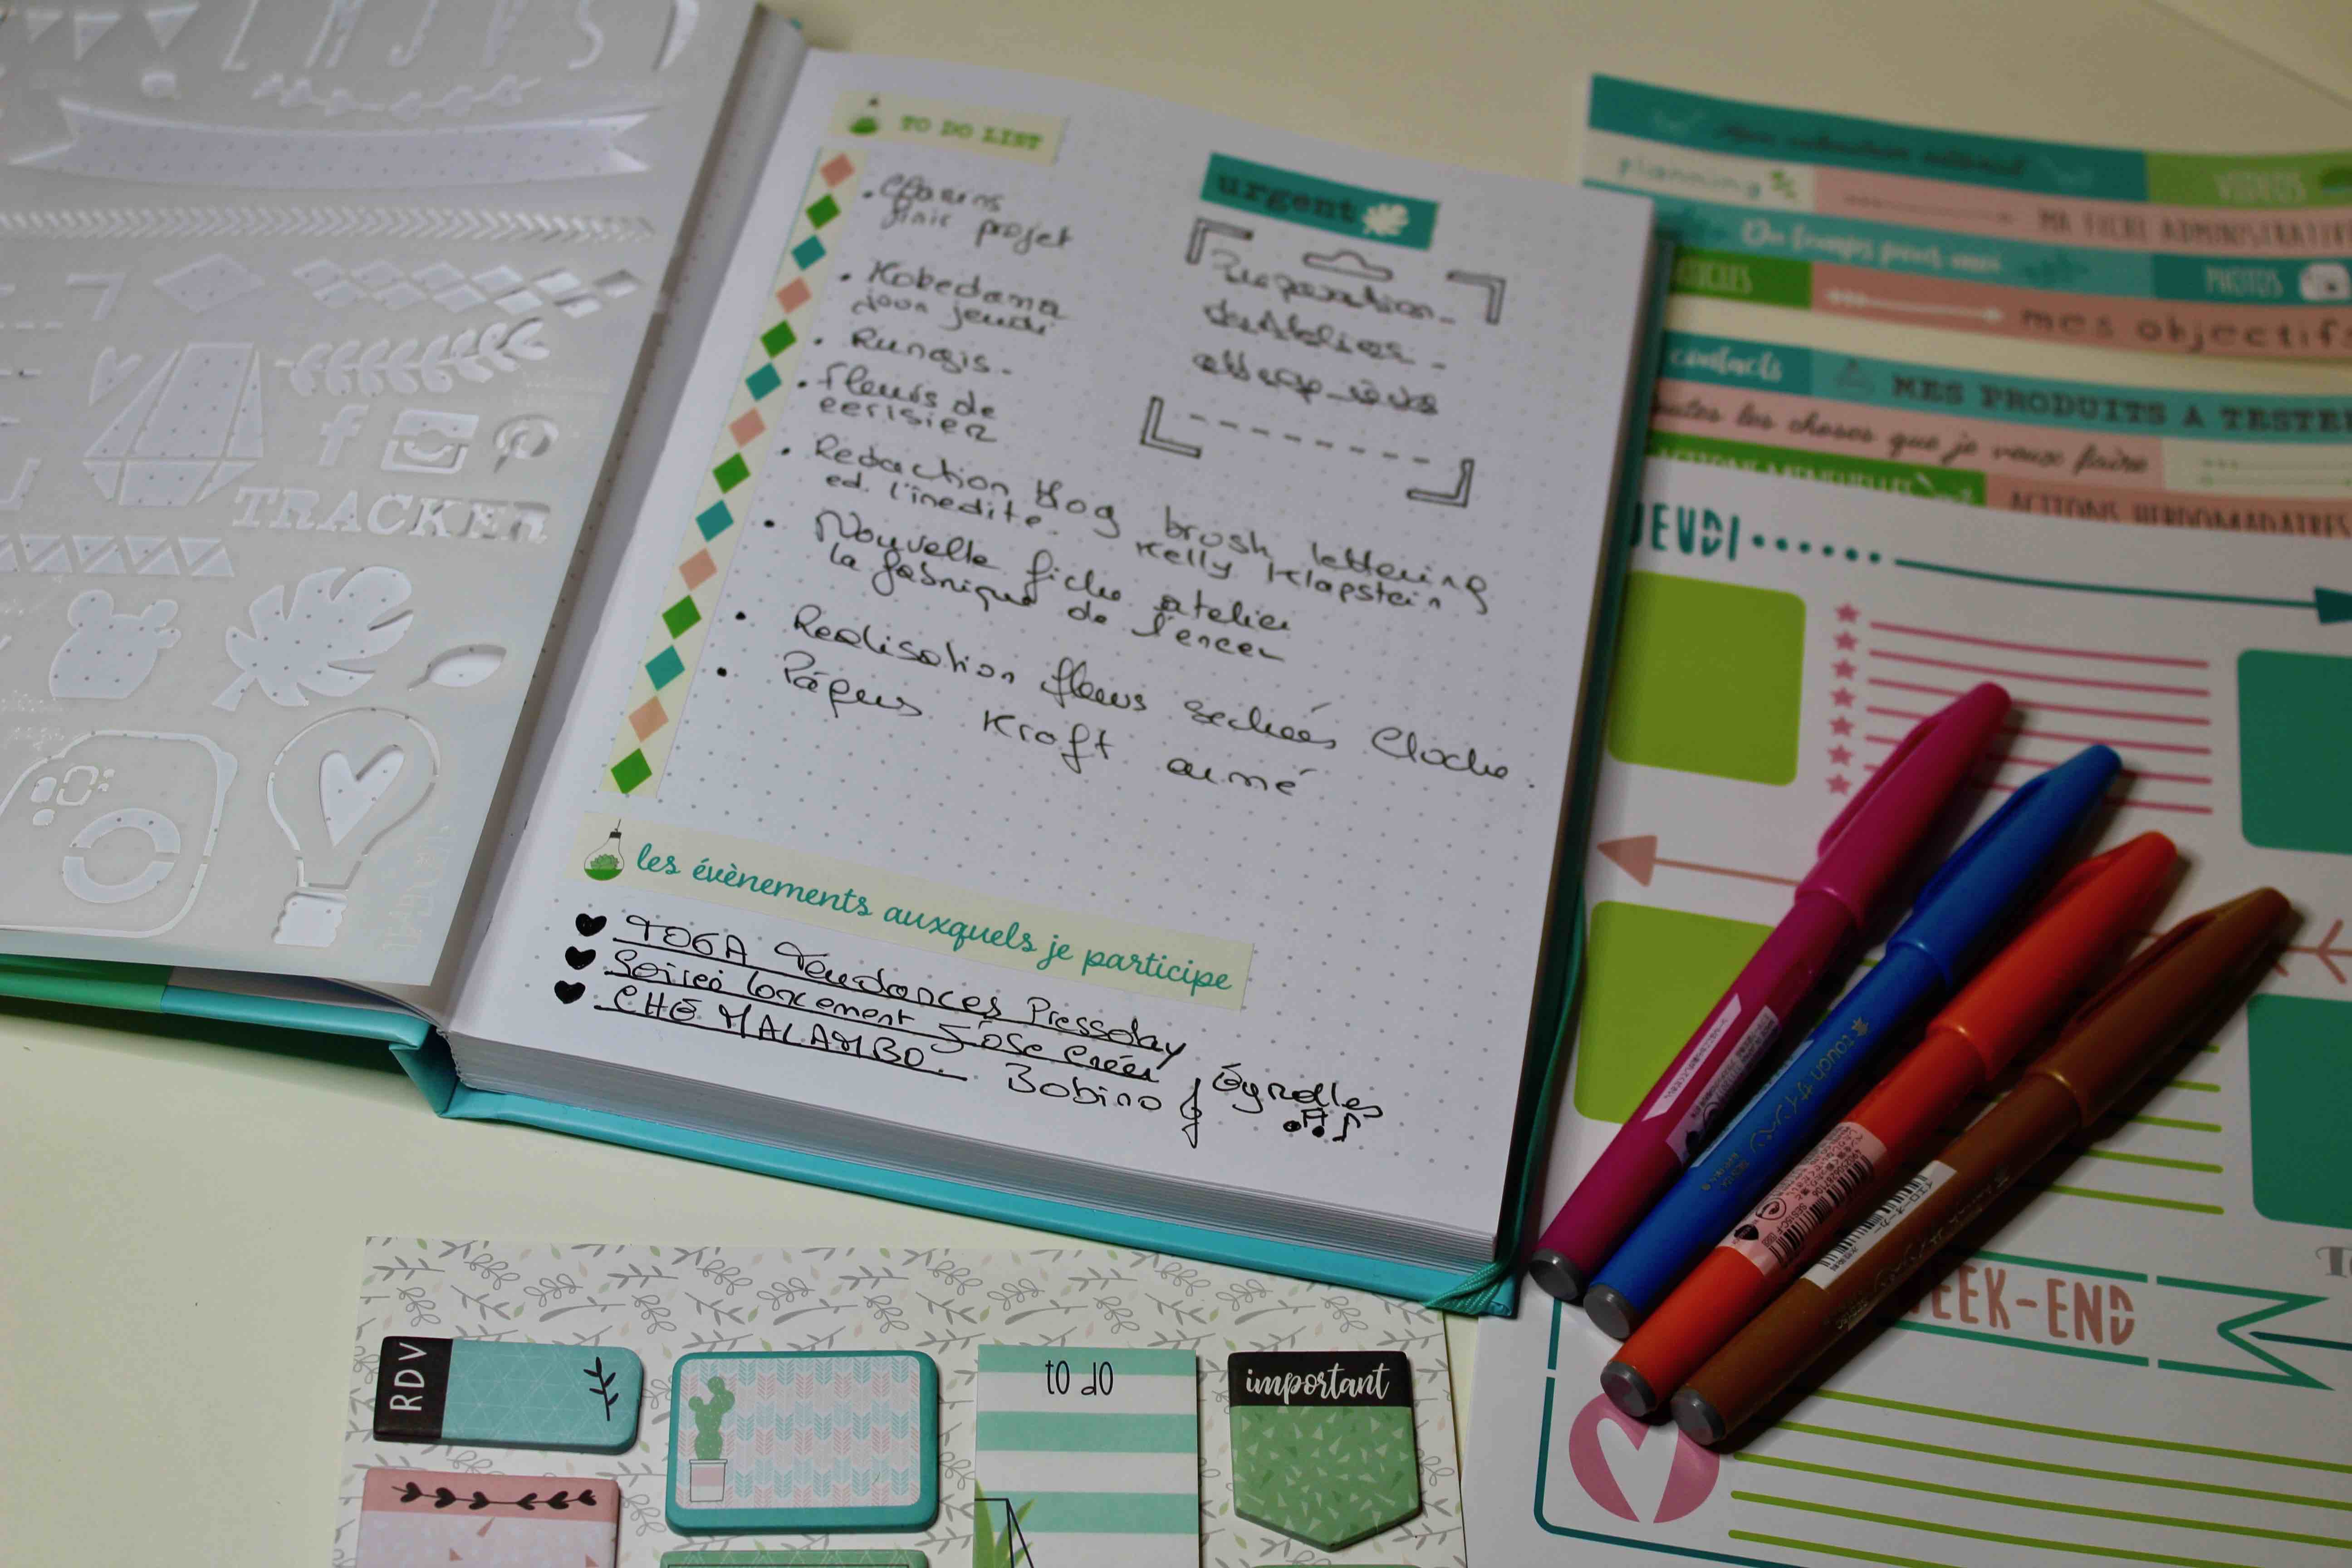 TRACKER
TO DO LIST
finir projet
• Kokedama
jour jeudi
• Rungis.
• Fleurs de
cerisier
• Redaction blog brush lettering
ed. l'inedite. Kelly Klapstein
• Nouvelle fiche atelier
la fabrique de l'encer
• Realisation fleurs sechées Cloche.
• Papiers Kraft aimé
urgent
Preparation
les évènements auxquels je participe
TOGA Tendances Pressday
Soirée lancement J'ose créer Eyrolles
CHE MALAMBO. Bobino
planning
VIDEOS
MA FICHE ADMINISTRATIVE
Du temps pour moi
PHOTOS
mes objectifs
contacts
MES PRODUITS A TESTER
toutes les choses que je veux faire
ACTIONS MENSUELLES
ACTIONS HEBDOMADAIRES
JEUDI
touch サインペン
WEEK-END
RDV
to do
important